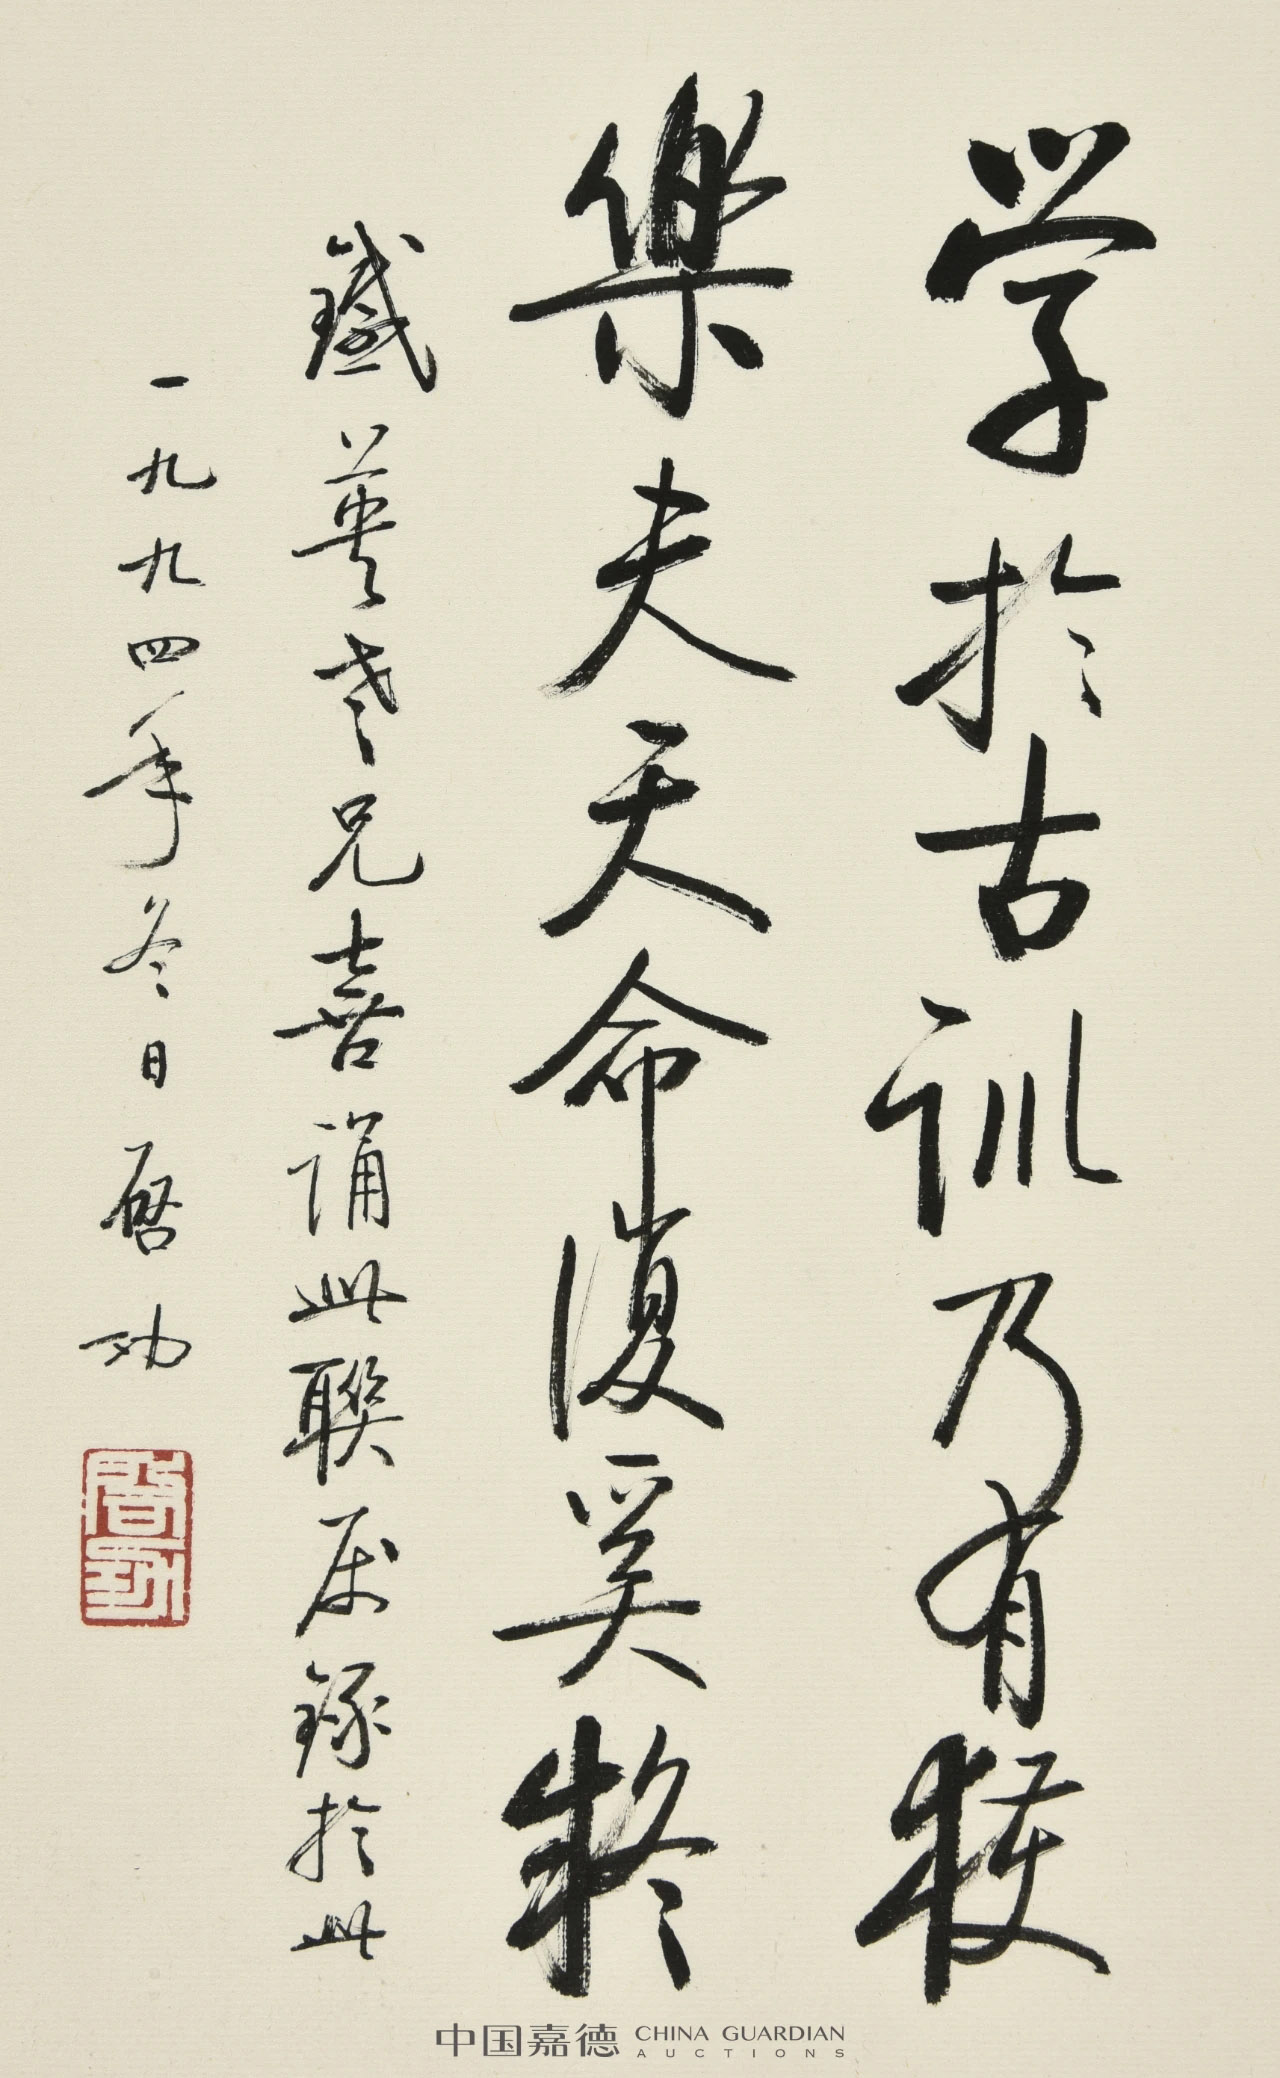 学於古訓乃有獲
樂夫天命復奚疑
鐵英老兄喜誦此聯属録於此
一九九四年冬日啓功
啓功
中国嘉德 CHINA GUARDIAN
AUCTIONS